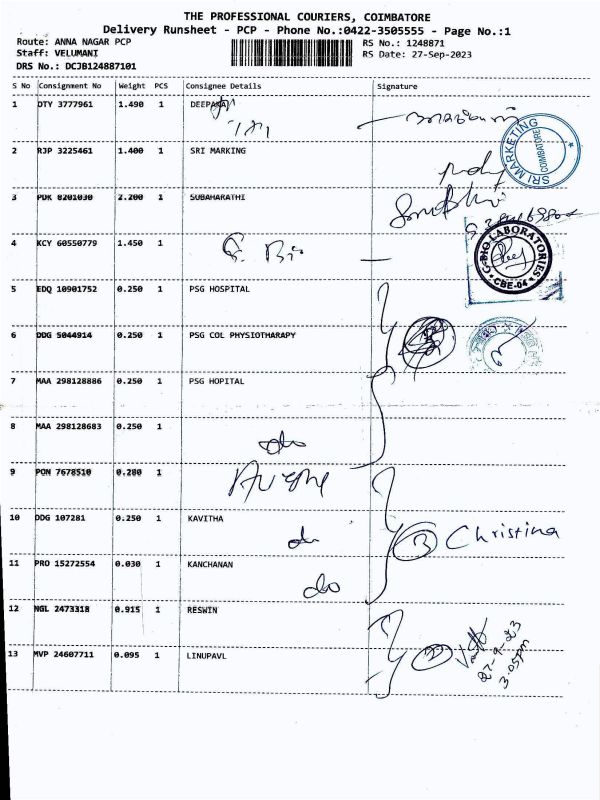 THE PROFESSIONAL COURIERS, COIMBATORE
Delivery Runsheet - PCP - Phone No.:0422-3505555 - Page No.:1
Route: ANNA NAGAR PCP RS No.: 1248871
Staff: VELUMANI RS Date: 27-Sep-2023
DRS No.: DCJB124887101
S No Consignment No Weight PCS Consignee Details Signature
1 DTY 3777961 1.490 1
SRI MARKETING COIMBATORE
2 RJP 3225461 1.400 1 SRI MARKING
3 PDK 8201030 2.200 1 SUBAHARATHI
4 KCY 60550779 1.450 1
BIO LABORATORIES CBE-04
5 EDQ 10901752 0.250 1 PSG HOSPITAL
6 DDG 5044914 0.250 1 PSG COL PHYSIOTHARAPY
7 MAA 298128886 0.250 1 PSG HOPITAL
8 MAA 298128683 0.250 1
do
9 PON 7678510 0.280 1
10 DDG 107281 0.250 1 KAVITHA
do 3 Christina
11 PRO 15272554 0.030 1 KANCHANAN
do
12 NGL 2473318 0.915 1 RESWIN
13 MVP 24607711 0.095 1 LINUPAVL
27-9-23
3.05pm